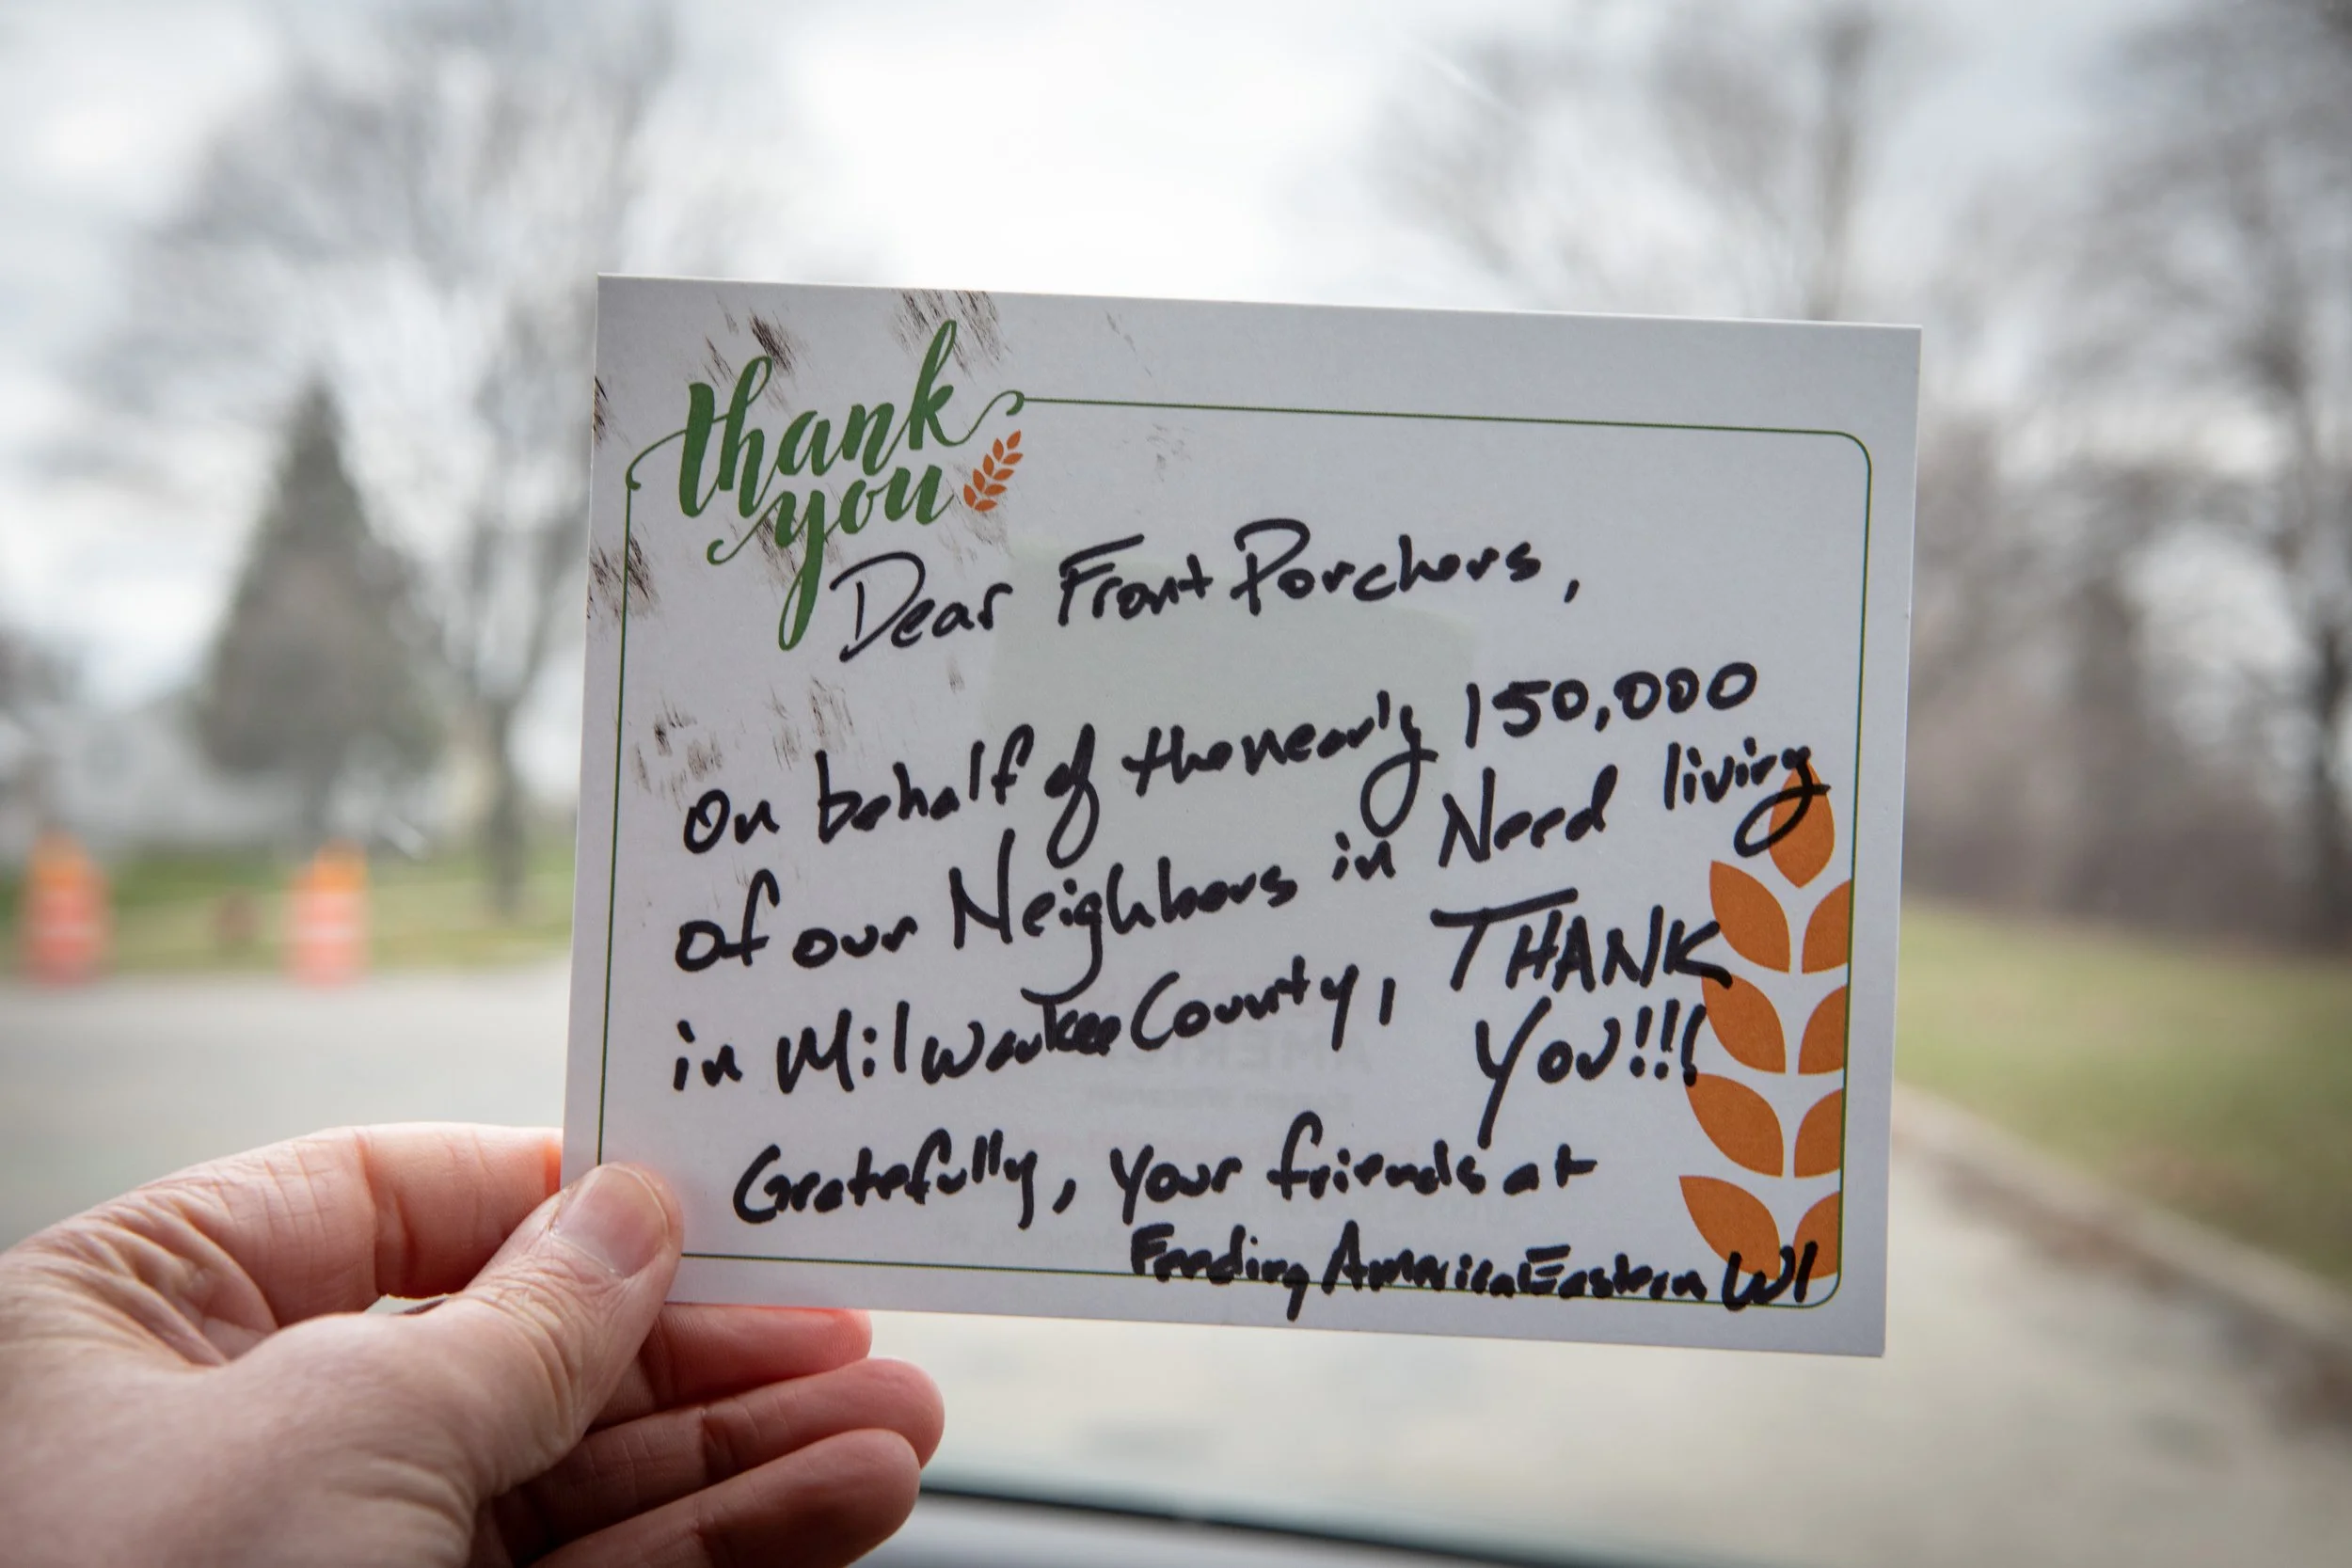 thank
you
Dear Front Porchers,
On behalf of the nearly 150,000
of our Neighbors in Need living
in Milwaukee County, THANK
YOU!!!
Gratefully, your friends at
Feeding America Eastern WI